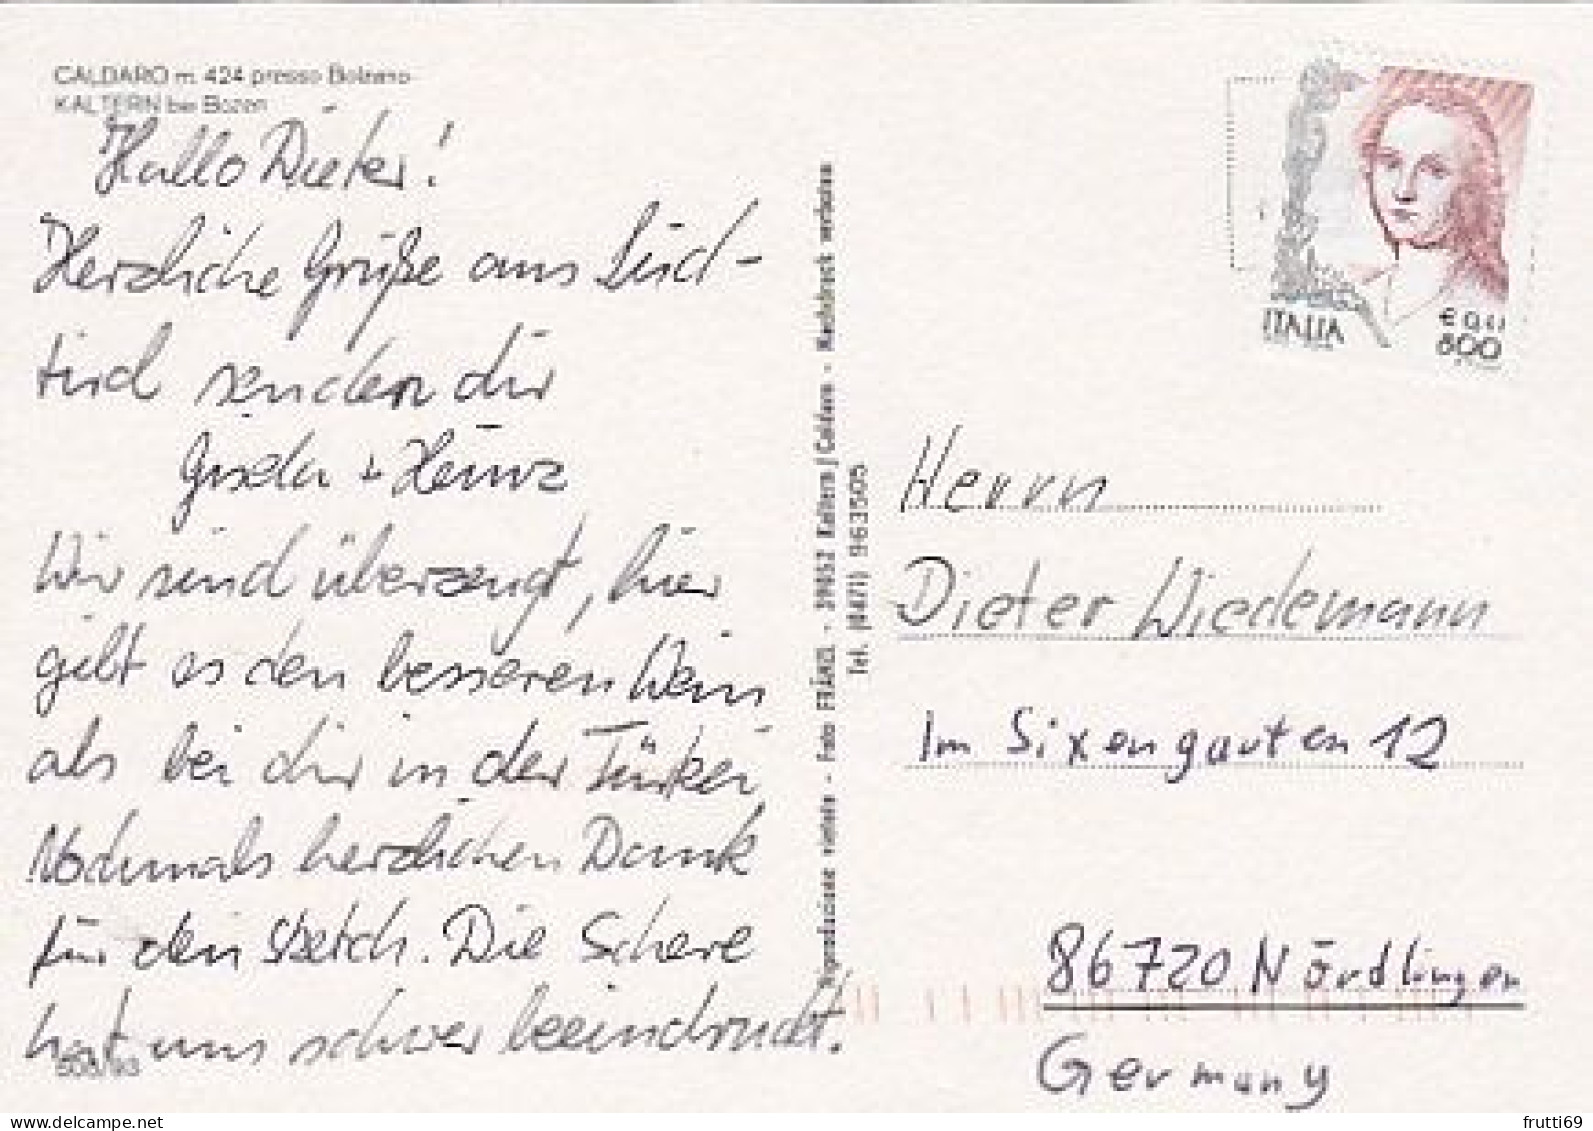 CALDARO m. 424 presso Bolzano
KALTERN bei Bozen
Hallo Dieter!
Herzliche Grüße aus Süd-
tirol senden dir
Gisela + Heinz
Wir sind überzeugt, hier
gibt es den besseren Wein
als bei dir in der Türkei
Nochmals herzlichen Dank
für den Sketch. Die Schere
hat uns schwer beeindruckt.
Riproduzione vietata - Foto FRÄNZL - 39052 Kaltern/Caldaro - Nachdruck verboten
Tel. (0471) 963505
ITALIA
800
Herrn
Dieter Wiedemann
Im Sixengarten 12
86720 Nördlingen
Germany
www.delcampe.net
frutti69